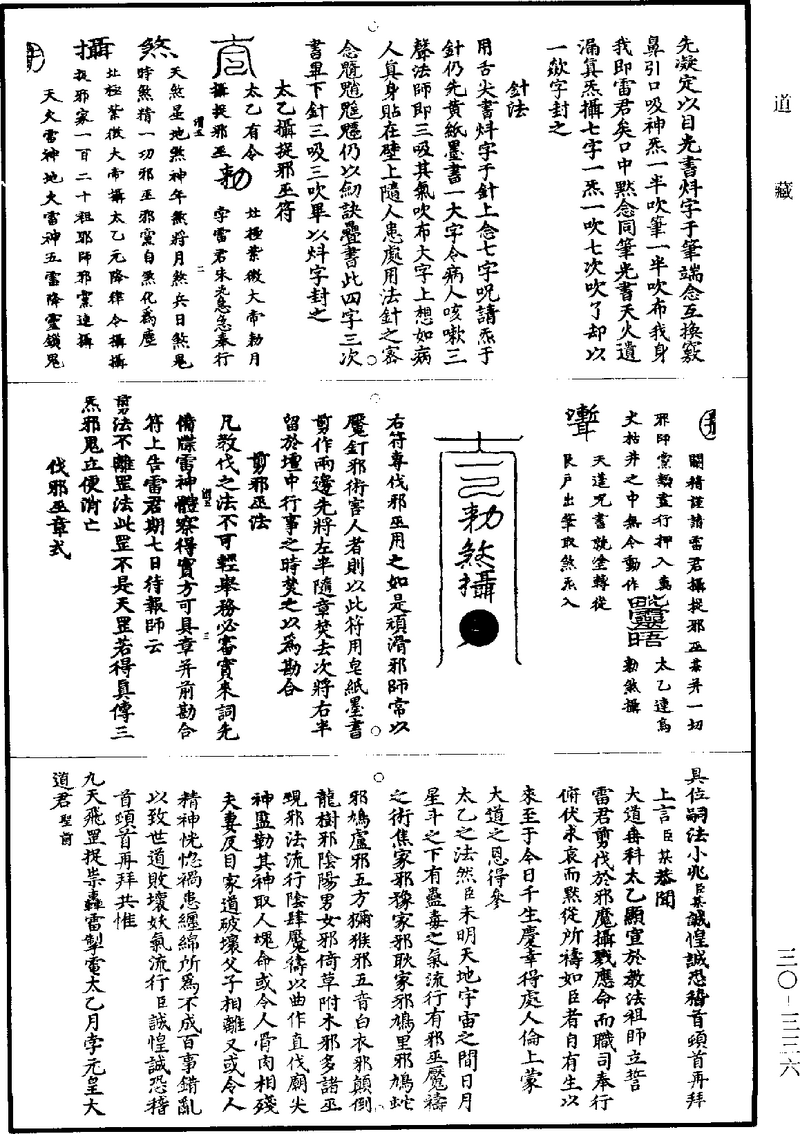 道藏
三〇-三三六
先凝定以目光書炓字于筆端念互換竅
鼻引口吸神炁一半吹筆一半吹布我身
我即雷君矣口中默念同筆光書天火遺
漏真炁攝七字一炁一吹七次吹了却以
一欻字封之
針法
用舌尖書炓字于針上念七字呪請炁于
針仍先黄紙墨書一大字令病人咳嗽三
聲法師即三吸其氣吹布大字上想如病
人真身貼在壁上隨人患處用法針之密
念仍以劒訣疊書此四字三次
書畢下針三吸三吹畢以炓字封之
太乙攝捉邪巫符
太乙有令
攝捉邪巫
勑
北極紫微大帝勑月
孛雷君朱光急急奉行
天煞星地煞神年煞將月煞兵日煞鬼
時煞精一切邪巫邪黨自煞化為塵
煞
北極紫微大帝攝太乙元降律令攝攝
捉邪家一百二十祖邪師邪黨速攝
攝
天火雷神地火雷神五雷降靈鎖鬼
關精謹請雷君攝捉邪巫某并一切
邪師黨類盡行押入萬
丈枯井之中無令動作
太乙速為
勑煞攝
天蓬呪書就塗轉從
艮戶出筆取煞炁入
勑煞攝
右符專伐邪巫用之如是頑滑邪師常以
魘釘邪術害人者則以此符用皂紙墨書
剪作兩邊先將左半隨章焚去次將右半
留於壇中行事之時焚之以為勘合
剪邪巫法
凡教伐之法不可輕舉務必審實來詞先
備牒雷神體察得實方可具章并前勘合
符上告雷君期七日待報師云
剪法不離罡法此罡不是天罡若得真傳三
炁邪鬼立便消亡
伐邪巫章式
具位嗣法小兆臣某誠惶誠恐稽首頓首再拜
上言臣某恭聞
大道毒科太乙顯宣於教法祖師立誓
雷君剪伐於邪魔攝戮應命而職司奉行
俯伏求哀而默從所禱如臣者自有生以
來至于今日千生慶幸得處人倫上蒙
大道之恩得參
太乙之法然臣未明天地宇宙之間日月
星斗之下有蠱毒之氣流行有邪巫魘禱
之術焦家邪豫家邪耿家邪鳩里邪鳩蛇
邪鳩盧邪五方獼猴邪五音白衣邪顛倒
龍樹邪陰陽男女邪倚草附木邪多諸巫
覡邪法流行陰肆魘禱以曲作直伐廟尖
神監勒其神取人塊命或令人骨肉相殘
夫妻反目家道破壞父子相離又或令人
精神恍惚禍患纏綿所為不成百事錯亂
以致世道敗壞妖氣流行臣誠惶誠恐稽
首頓首再拜共惟
九天飛罡捉祟轟雷掣電太乙月孛元皇大
道君聖前